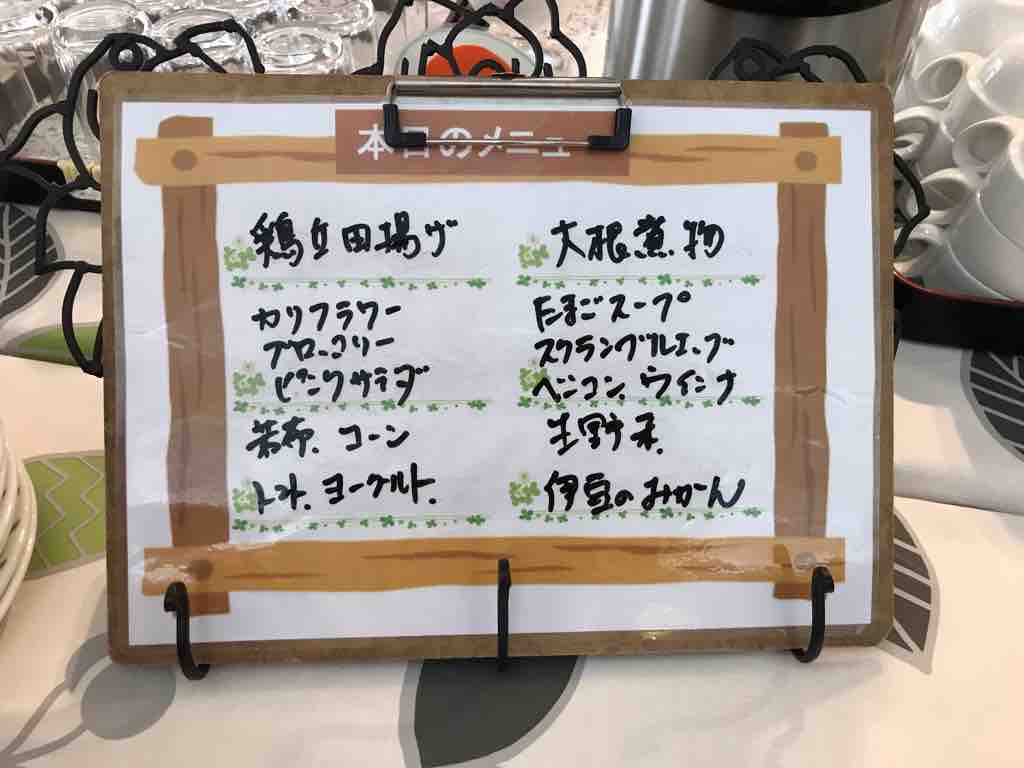 本日のメニュー
鶏立田揚げ
カリフラワー
ブロッコリー
ピンクサラダ
若布、コーン
トマト、ヨーグルト、
大根煮物
たまごスープ
スクランブルエッグ
ベーコン、ウインナ
生野菜、
伊豆のみかん